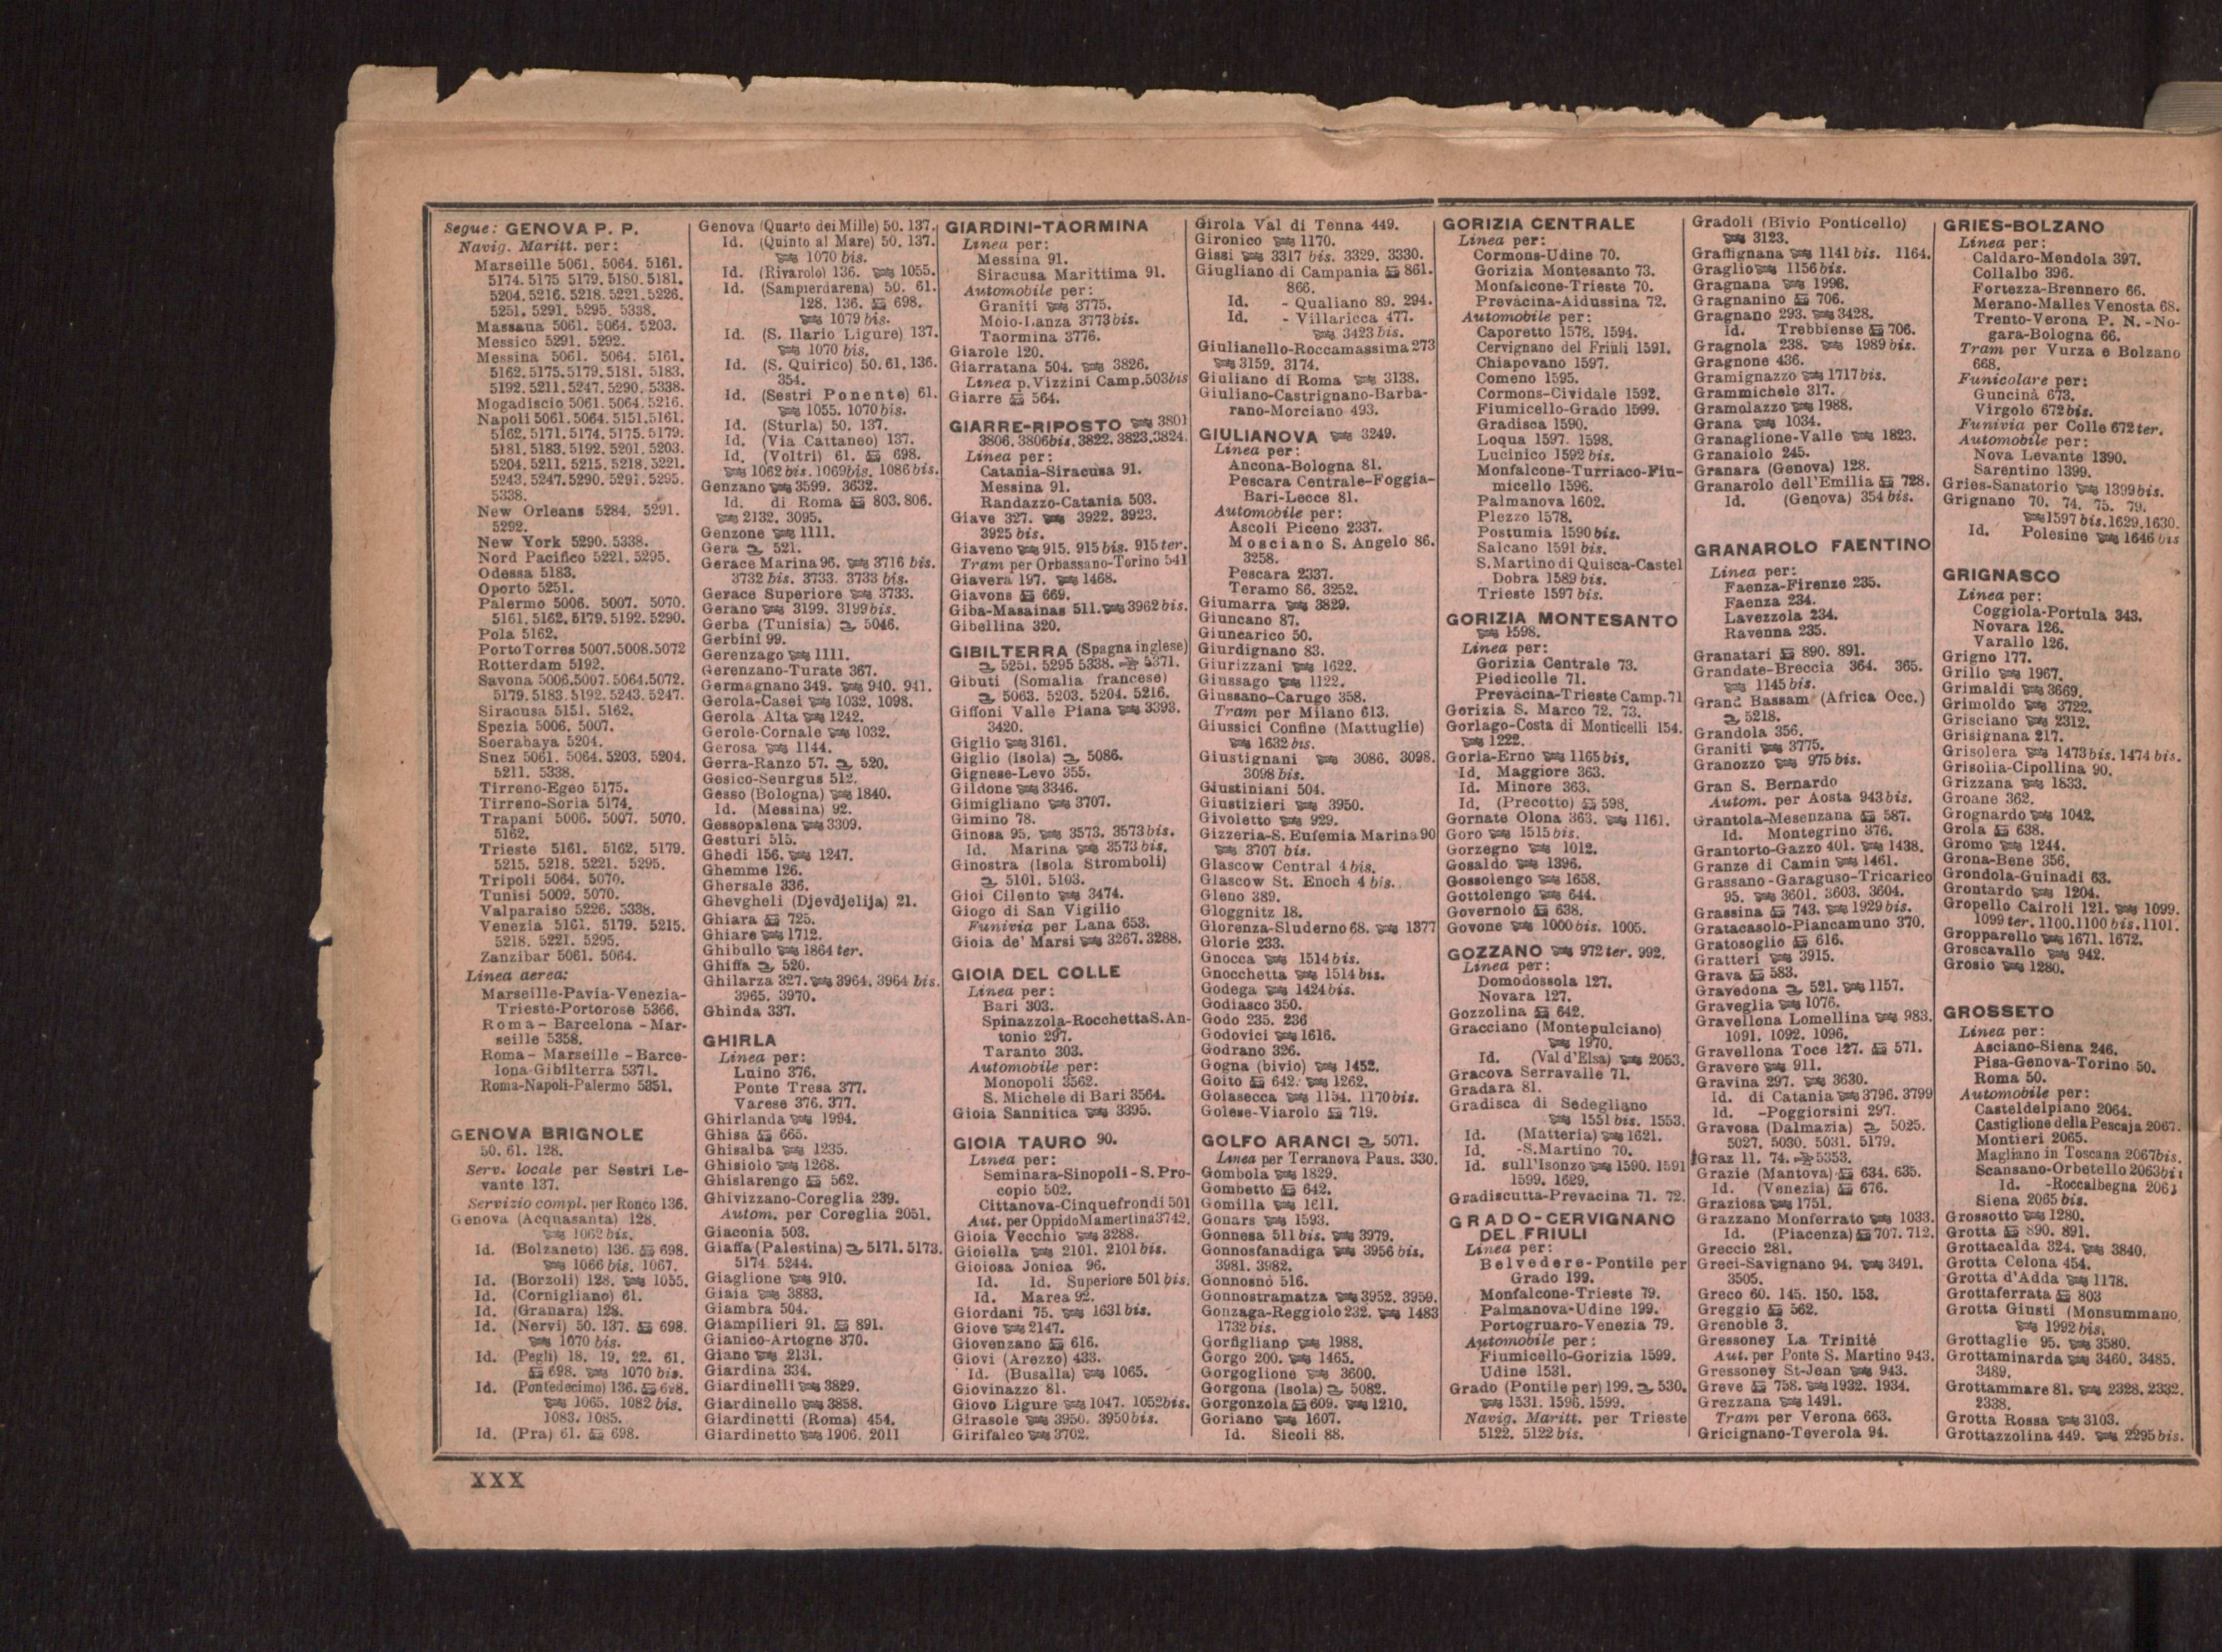 Segue: GENOVA P. P.
Navig. Maritt. per:
Marseille 5061. 5064. 5161.
5174. 5175. 5179. 5180. 5181.
5204. 5216. 5218. 5221. 5226.
5251. 5291. 5295. 5338.
Massaua 5061. 5064. 5203.
Messico 5291. 5292.
Messina 5061. 5064. 5161.
5162. 5175. 5179. 5181. 5183.
5192. 5211. 5247. 5290. 5338.
Mogadiscio 5061. 5064. 5216.
Napoli 5061. 5064. 5151. 5161.
5162. 5171. 5174. 5175. 5179.
5181. 5183. 5192. 5201. 5203.
5204. 5211. 5215. 5218. 5221.
5243. 5247. 5290. 5291. 5295.
5338.
New Orleans 5284. 5291.
5292.
New York 5290. 5338.
Nord Pacifico 5221. 5295.
Odessa 5183.
Oporto 5251.
Palermo 5006. 5007. 5070.
5161. 5162. 5179. 5192. 5290.
Pola 5162.
Porto Torres 5007. 5008. 5072
Rotterdam 5192.
Savona 5006. 5007. 5064. 5072.
5179. 5183. 5192. 5243. 5247.
Siracusa 5151. 5162.
Spezia 5006. 5007.
Soerabaya 5204.
Suez 5061. 5064. 5203. 5204.
5211. 5338.
Tirreno-Egeo 5175.
Tirreno-Soria 5174.
Trapani 5006. 5007. 5070.
5162.
Trieste 5161. 5162. 5179.
5215. 5218. 5221. 5295.
Tripoli 5064. 5070.
Tunisi 5009. 5070.
Valparaiso 5226. 5338.
Venezia 5161. 5179. 5215.
5218. 5221. 5295.
Zanzibar 5061. 5064.
Linea aerea:
Marseille-Pavia-Venezia-
Trieste-Portorose 5366.
Roma - Barcelona - Mar-
seille 5358.
Roma - Marseille - Barce-
lona-Gibilterra 5371.
Roma-Napoli-Palermo 5351.
GENOVA BRIGNOLE
50. 61. 128.
Serv. locale per Sestri Le-
vante 137.
Servizio compl. per Ronco 136.
Genova (Acquasanta) 128.
1062 bis.
Id. (Bolzaneto) 136. 698.
1066 bis. 1067.
Id. (Borzoli) 128. 1055.
Id. (Cornigliano) 61.
Id. (Granara) 128.
Id. (Nervi) 50. 137. 698.
1070 bis.
Id. (Pegli) 18. 19. 22. 61.
698. 1070 bis.
Id. (Pontedecimo) 136. 698.
1065. 1082 bis.
1083. 1085.
Id. (Pra) 61. 698.
Genova (Quarto dei Mille) 50. 137.
Id. (Quinto al Mare) 50. 137.
1070 bis.
Id. (Rivarolo) 136. 1055.
Id. (Sampierdarena) 50. 61.
128. 136. 698.
1079 bis.
Id. (S. Ilario Ligure) 137.
1070 bis.
Id. (S. Quirico) 50. 61. 136.
354.
Id. (Sestri Ponente) 61.
1055. 1070 bis.
Id. (Sturla) 50. 137.
Id. (Via Cattaneo) 137.
Id. (Voltri) 61. 698.
1062 bis. 1069 bis. 1086 bis.
Genzano 3599. 3632.
Id. di Roma 803. 806.
2132. 3095.
Genzone 1111.
Gera 521.
Gerace Marina 96. 3716 bis.
3732 bis. 3733. 3733 bis.
Gerace Superiore 3733.
Gerano 3199. 3199 bis.
Gerba (Tunisia) 5046.
Gerbini 99.
Gerenzago 1111.
Gerenzano-Turate 367.
Germagnano 349. 940. 941.
Gerola-Casei 1032. 1098.
Gerola Alta 1242.
Gerole-Cornale 1032.
Gerosa 1144.
Gerra-Ranzo 57. 520.
Gesico-Seurgus 512.
Gesso (Bologna) 1840.
Id. (Messina) 92.
Gessopalena 3309.
Gesturi 515.
Ghedi 156. 1247.
Ghemme 126.
Ghersale 336.
Ghevgheli (Djevdjelija) 21.
Ghiara 725.
Ghiare 1712.
Ghibullo 1864 ter.
Ghiffa 520.
Ghilarza 327. 3964. 3964 bis.
3965. 3970.
Ghinda 337.
GHIRLA
Linea per:
Luino 376.
Ponte Tresa 377.
Varese 376. 377.
Ghirlanda 1994.
Ghisa 665.
Ghisalba 1235.
Ghisiolo 1268.
Ghislarengo 562.
Ghivizzano-Coreglia 239.
Autom. per Coreglia 2051.
Giaconia 503.
Giaffa (Palestina) 5171. 5173.
5174. 5244.
Giaglione 910.
Giaia 3883.
Giambra 504.
Giampilieri 91. 891.
Gianico-Artogne 370.
Giano 2131.
Giardina 334.
Giardinelli 3829.
Giardinello 3858.
Giardinetti (Roma) 454.
Giardinetto 1906. 2011
GIARDINI-TAORMINA
Linea per:
Messina 91.
Siracusa Marittima 91.
Automobile per:
Graniti 3775.
Moio-Lanza 3773 bis.
Taormina 3776.
Giarole 120.
Giarratana 504. 3826.
Linea p. Vizzini Camp. 503 bis
Giarre 564.
GIARRE-RIPOSTO 3801
3806. 3806 bis. 3822. 3823. 3824.
Linea per:
Catania-Siracusa 91.
Messina 91.
Randazzo-Catania 503.
Giave 327. 3922. 3923.
3925 bis.
Giaveno 915. 915 bis. 915 ter.
Tram per Orbassano-Torino 541
Giavera 197. 1468.
Giavons 669.
Giba-Masainas 511. 3962 bis.
Gibellina 320.
GIBILTERRA (Spagna inglese)
5251. 5295 5338. 5371.
Gibuti (Somalia francese)
5063. 5203. 5204. 5216.
Giffoni Valle Piana 3393.
3420.
Giglio 3161.
Giglio (Isola) 5086.
Gignese-Levo 355.
Gildone 3346.
Gimigliano 3707.
Gimino 78.
Ginosa 95. 3573. 3573 bis.
Id. Marina 3573 bis.
Ginostra (Isola Stromboli)
5101. 5103.
Gioi Cilento 3474.
Giogo di San Vigilio
Funivia per Lana 653.
Gioia de' Marsi 3267. 3288.
GIOIA DEL COLLE
Linea per:
Bari 303.
Spinazzola-Rocchetta S. An-
tonio 297.
Taranto 303.
Automobile per:
Monopoli 3562.
S. Michele di Bari 3564.
Gioia Sannitica 3395.
GIOIA TAURO 90.
Linea per:
Seminara-Sinopoli - S. Pro-
copio 502.
Cittanova-Cinquefrondi 501
Aut. per Oppido Mamertina 3742.
Gioia Vecchio 3288.
Gioiella 2101. 2101 bis.
Gioiosa Jonica 96.
Id. Id. Superiore 501 bis.
Id. Marea 92.
Giordani 75. 1631 bis.
Giove 2147.
Giovenzano 616.
Giovi (Arezzo) 433.
Id. (Busalla) 1065.
Giovinazzo 81.
Giovo Ligure 1047. 1052 bis.
Girasole 3950. 3950 bis.
Girifalco 3702.
Girola Val di Tenna 449.
Gironico 1170.
Gissi 3317 bis. 3329. 3330.
Giugliano di Campania 861.
866.
Id. - Qualiano 89. 294.
Id. - Villaricca 477.
3423 bis.
Giulianello-Roccamassima 273
3159. 3174.
Giuliano di Roma 3138.
Giuliano-Castrignano-Barba-
rano-Morciano 493.
GIULIANOVA 3249.
Linea per:
Ancona-Bologna 81.
Pescara Centrale-Foggia-
Bari-Lecce 81.
Automobile per:
Ascoli Piceno 2337.
Mosciano S. Angelo 86.
3258.
Pescara 2337.
Teramo 86. 3252.
Giumarra 3829.
Giuncano 87.
Giuncarico 50.
Giurdignano 83.
Giurizzani 1622.
Giussago 1122.
Giussano-Carugo 358.
Tram per Milano 613.
Giussici Confine (Mattuglie)
1632 bis.
Giustignani 3086. 3098.
3098 bis.
Giustiniani 504.
Giustizieri 3950.
Givoletto 929.
Gizzeria-S. Eufemia Marina 90
3707 bis.
Glascow Central 4 bis.
Glascow St. Enoch 4 bis.
Gleno 389.
Gloggnitz 18.
Glorenza-Sluderno 68. 1377
Glorie 233.
Gnocca 1514 bis.
Gnocchetta 1514 bis.
Godega 1424 bis.
Godiasco 350.
Godo 235. 236
Godovici 1616.
Godrano 326.
Gogna (bivio) 1452.
Goito 642. 1262.
Golasecca 1154. 1170 bis.
Golese-Viarolo 719.
GOLFO ARANCI 5071.
Linea per Terranova Paus. 330.
Gombola 1829.
Gombetto 642.
Gomilla 1611.
Gonars 1593.
Gonnesa 511 bis. 3979.
Gonnosfanadiga 3956 bis.
3981. 3982.
Gonnosnò 516.
Gonnostramatza 3952. 3959.
Gonzaga-Reggiolo 232. 1483
1732 bis.
Gorfigliano 1988.
Gorgo 200. 1465.
Gorgoglione 3600.
Gorgona (Isola) 5082.
Gorgonzola 609. 1210.
Goriano 1607.
Id. Sicoli 88.
GORIZIA CENTRALE
Linea per:
Cormons-Udine 70.
Gorizia Montesanto 73.
Monfalcone-Trieste 70.
Prevacina-Aidussina 72.
Automobile per:
Caporetto 1578. 1594.
Cervignano del Friuli 1591.
Chiapovano 1597.
Comeno 1595.
Cormons-Cividale 1592.
Fiumicello-Grado 1599.
Gradisca 1590.
Loqua 1597. 1598.
Lucinico 1592 bis.
Monfalcone-Turriaco-Fiu-
micello 1596.
Palmanova 1602.
Plezzo 1578.
Postumia 1590 bis.
Salcano 1591 bis.
S. Martino di Quisca-Castel
Dobra 1589 bis.
Trieste 1597 bis.
GORIZIA MONTESANTO
1598.
Linea per:
Gorizia Centrale 73.
Piedicolle 71.
Prevacina-Trieste Camp. 71
Gorizia S. Marco 72. 73.
Gorlago-Costa di Monticelli 154.
1222.
Gorla-Erno 1165 bis.
Id. Maggiore 363.
Id. Minore 363.
Id. (Precotto) 598.
Gornate Olona 363. 1161.
Goro 1515 bis.
Gorzegno 1012.
Gosaldo 1396.
Gossolengo 1658.
Gottolengo 644.
Governolo 638.
Govone 1000 bis. 1005.
GOZZANO 972 ter. 992.
Linea per:
Domodossola 127.
Novara 127.
Gozzolina 642.
Gracciano (Montepulciano)
1970.
Id. (Val d'Elsa) 2053.
Gracova Serravalle 71.
Gradara 81.
Gradisca di Sedegliano
1551 bis. 1553.
Id. (Matteria) 1621.
Id. -S. Martino 70.
Id. sull'Isonzo 1590. 1591
1599. 1629.
Gradiscutta-Prevacina 71. 72.
GRADO-CERVIGNANO
DEL FRIULI
Linea per:
Belvedere-Pontile per
Grado 199.
Monfalcone-Trieste 79.
Palmanova-Udine 199.
Portogruaro-Venezia 79.
Automobile per:
Fiumicello-Gorizia 1599.
Udine 1531.
Grado (Pontile per) 199. 530.
1531. 1596. 1599.
Navig. Maritt. per Trieste
5122. 5122 bis.
Gradoli (Bivio Ponticello)
3123.
Graffignana 1141 bis. 1164.
Graglio 1156 bis.
Gragnana 1996.
Gragnanino 706.
Gragnano 293. 3428.
Id. Trebbiense 706.
Gragnola 238. 1989 bis.
Gragnone 436.
Gramignazzo 1717 bis.
Grammichele 317.
Gramolazzo 1988.
Grana 1034.
Granaglione-Valle 1823.
Granaiolo 245.
Granara (Genova) 128.
Granarolo dell'Emilia 728.
Id. (Genova) 354 bis.
GRANAROLO FAENTINO
Linea per:
Faenza-Firenze 235.
Faenza 234.
Lavezzola 234.
Ravenna 235.
Granatari 890. 891.
Grandate-Breccia 364. 365.
1145 bis.
Grand Bassam (Africa Occ.)
5218.
Grandola 356.
Graniti 3775.
Granozzo 975 bis.
Gran S. Bernardo
Autom. per Aosta 943 bis.
Grantola-Mesenzana 587.
Id. Montegrino 376.
Grantorto-Gazzo 401. 1438.
Granze di Camin 1461.
Grassano-Garaguso-Tricarico
95. 3601. 3603. 3604.
Grassina 743. 1929 bis.
Gratacasolo-Piancamuno 370.
Gratosoglio 616.
Gratteri 3915.
Grava 583.
Gravedona 521. 1157.
Graveglia 1076.
Gravellona Lomellina 983.
1091. 1092. 1096.
Gravellona Toce 127. 571.
Gravere 911.
Gravina 297. 3630.
Id. di Catania 3796. 3799
Id. -Poggiorsini 297.
Gravosa (Dalmazia) 5025.
5027. 5030. 5031. 5179.
Graz 11. 74. 5353.
Grazie (Mantova) 634. 635.
Id. (Venezia) 676.
Graziosa 1751.
Grazzano Monferrato 1033.
Id. (Piacenza) 707. 712.
Greccio 281.
Greci-Savignano 94. 3491.
3505.
Greco 60. 145. 150. 153.
Greggio 562.
Grenoble 3.
Gressoney La Trinité
Aut. per Ponte S. Martino 943.
Gressoney St-Jean 943.
Greve 758. 1932. 1934.
Grezzana 1491.
Tram per Verona 663.
Gricignano-Teverola 94.
GRIES-BOLZANO
Linea per:
Caldaro-Mendola 397.
Collalbo 396.
Fortezza-Brennero 66.
Merano-Malles Venosta 68.
Trento-Verona P. N. - No-
gara-Bologna 66.
Tram per Vurza e Bolzano
668.
Funicolare per:
Guncinà 673.
Virgolo 672 bis.
Funivia per Colle 672 ter.
Automobile per:
Nova Levante 1390.
Sarentino 1399.
Gries-Sanatorio 1399 bis.
Grignano 70. 74. 75. 79.
1597 bis. 1629. 1630.
Id. Polesine 1646 bis
GRIGNASCO
Linea per:
Coggiola-Portula 343.
Novara 126.
Varallo 126.
Grigno 177.
Grillo 1967.
Grimaldi 3669.
Grimoldo 3722.
Grisciano 2312.
Grisignana 217.
Grisolera 1473 bis. 1474 bis.
Grisolia-Cipollina 90.
Grizzana 1833.
Groane 362.
Grognardo 1042.
Grola 638.
Gromo 1244.
Grona-Bene 356.
Grondola-Guinadi 63.
Grontardo 1204.
Gropello Cairoli 121. 1099.
1099 ter. 1100. 1100 bis. 1101.
Gropparello 1671. 1672.
Groscavallo 942.
Grosio 1280.
GROSSETO
Linea per:
Asciano-Siena 246.
Pisa-Genova-Torino 50.
Roma 50.
Automobile per:
Casteldelpiano 2064.
Castiglione della Pescaja 2067.
Montieri 2065.
Magliano in Toscana 2067 bis.
Scansano-Orbetello 2063 bis
Id. -Roccalbegna 2063
Siena 2065 bis.
Grossotto 1280.
Grotta 890. 891.
Grottacalda 324. 3840.
Grotta Celona 454.
Grotta d'Adda 1178.
Grottaferrata 803
Grotta Giusti (Monsummano,
1992 bis.
Grottaglie 95. 3580.
Grottaminarda 3460. 3485.
3489.
Grottammare 81. 2328. 2332.
2338.
Grotta Rossa 3103.
Grottazzolina 449. 2295 bis.
XXX